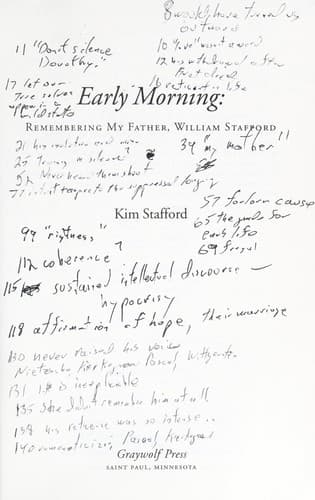 8 would have turned us
outwards
11 "Don't silence
Dorothy."
10 "wasn't a word
12 his withdrawal after
First
17 let our
true selves
appear in
16 reticent in life
Early Morning:
REMEMBERING MY FATHER, WILLIAM STAFFORD
21 his isolation and
39 "my mother"
25 in silence?
52 Never heard them shout
71 the suppressed longing
57 forlorn cause
65 the goals for
each life
69 frugal
Kim Stafford
99 "rightness"
112 coherence?
115 sustained intellectual discourse —
hypocrisy
118 affirmation of hope, their marriage
130 never raised his voice
Nietzsche Kierkegaard Pascal Wittgenstein
131 is inexplicable
135 She didn't remember him at all
138 his reticence was so intense..
140 romanticizing Pascal, Kierkegaard
Graywolf Press
SAINT PAUL, MINNESOTA